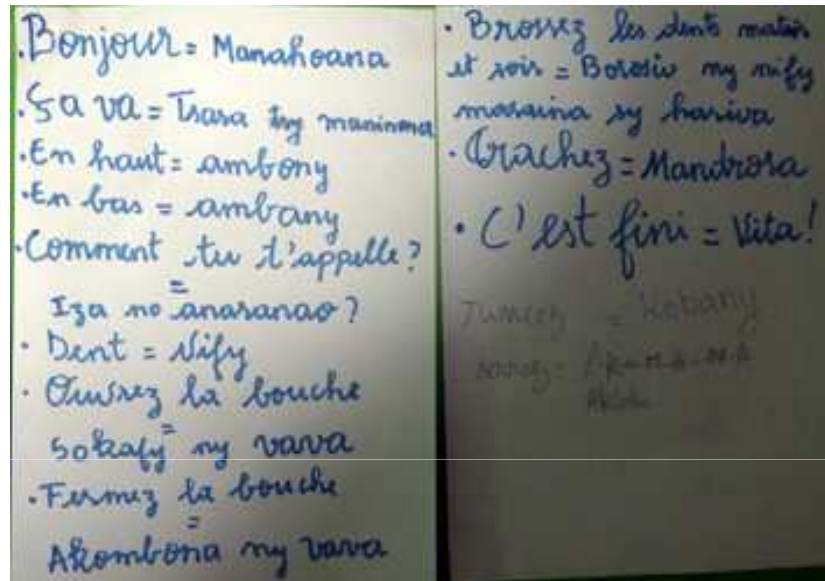 . Bonjour = Manahoana
. Ça va = Tsara tsy maninona
. En haut = ambony
. En bas = ambany
. Comment tu t'appelle?
=
Iza no anaranao?
. Dent = Nify
. Ouvrez la bouche
=
Sokafy ny vava
. Fermez la bouche
=
Akombona ny vava
. Brossez les dents matin
et soir = Borosio ny nify
maraina sy hariva
. Crachez = Mandrora
. C'est fini = Vita!
= Kobany